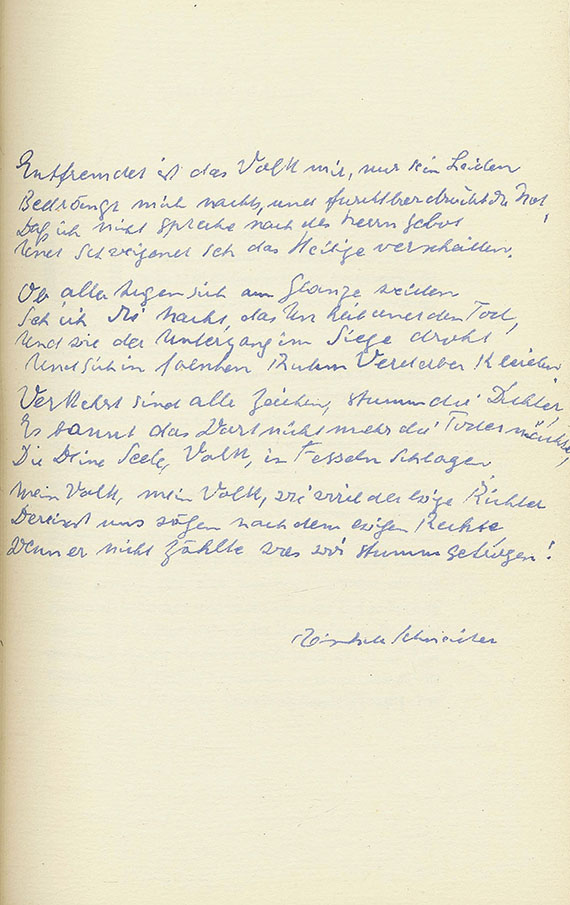 Entfremdet ist das Volk mir, nur sein Leiden
Bedrängt mich nachts, und furchtbar drückt die Not,
Daß ich nicht spreche nach des Herrn Gebot
Und schweigend sich das Heilige verscheiden.
Ob aller Augen sich am Glanze weiden
Seh ich die Nacht, das Unheil und den Tod,
Und wie der Untergang im Siege droht
Und sich in falschen Ruhm Verderber kleiden
Verkehrt sind alle Zeichen, stumm die Dichter,
Es bannt das Wort nicht mehr die Todesmächte,
Die Deine Seele, Volk, in Fesseln schlagen
Mein Volk, mein Volk, wie wird der ewige Richter
Dereinst uns wägen nach dem ewigen Rechte
Wenn er nicht zählte was wir stumm getragen!
Reinhold Schneider